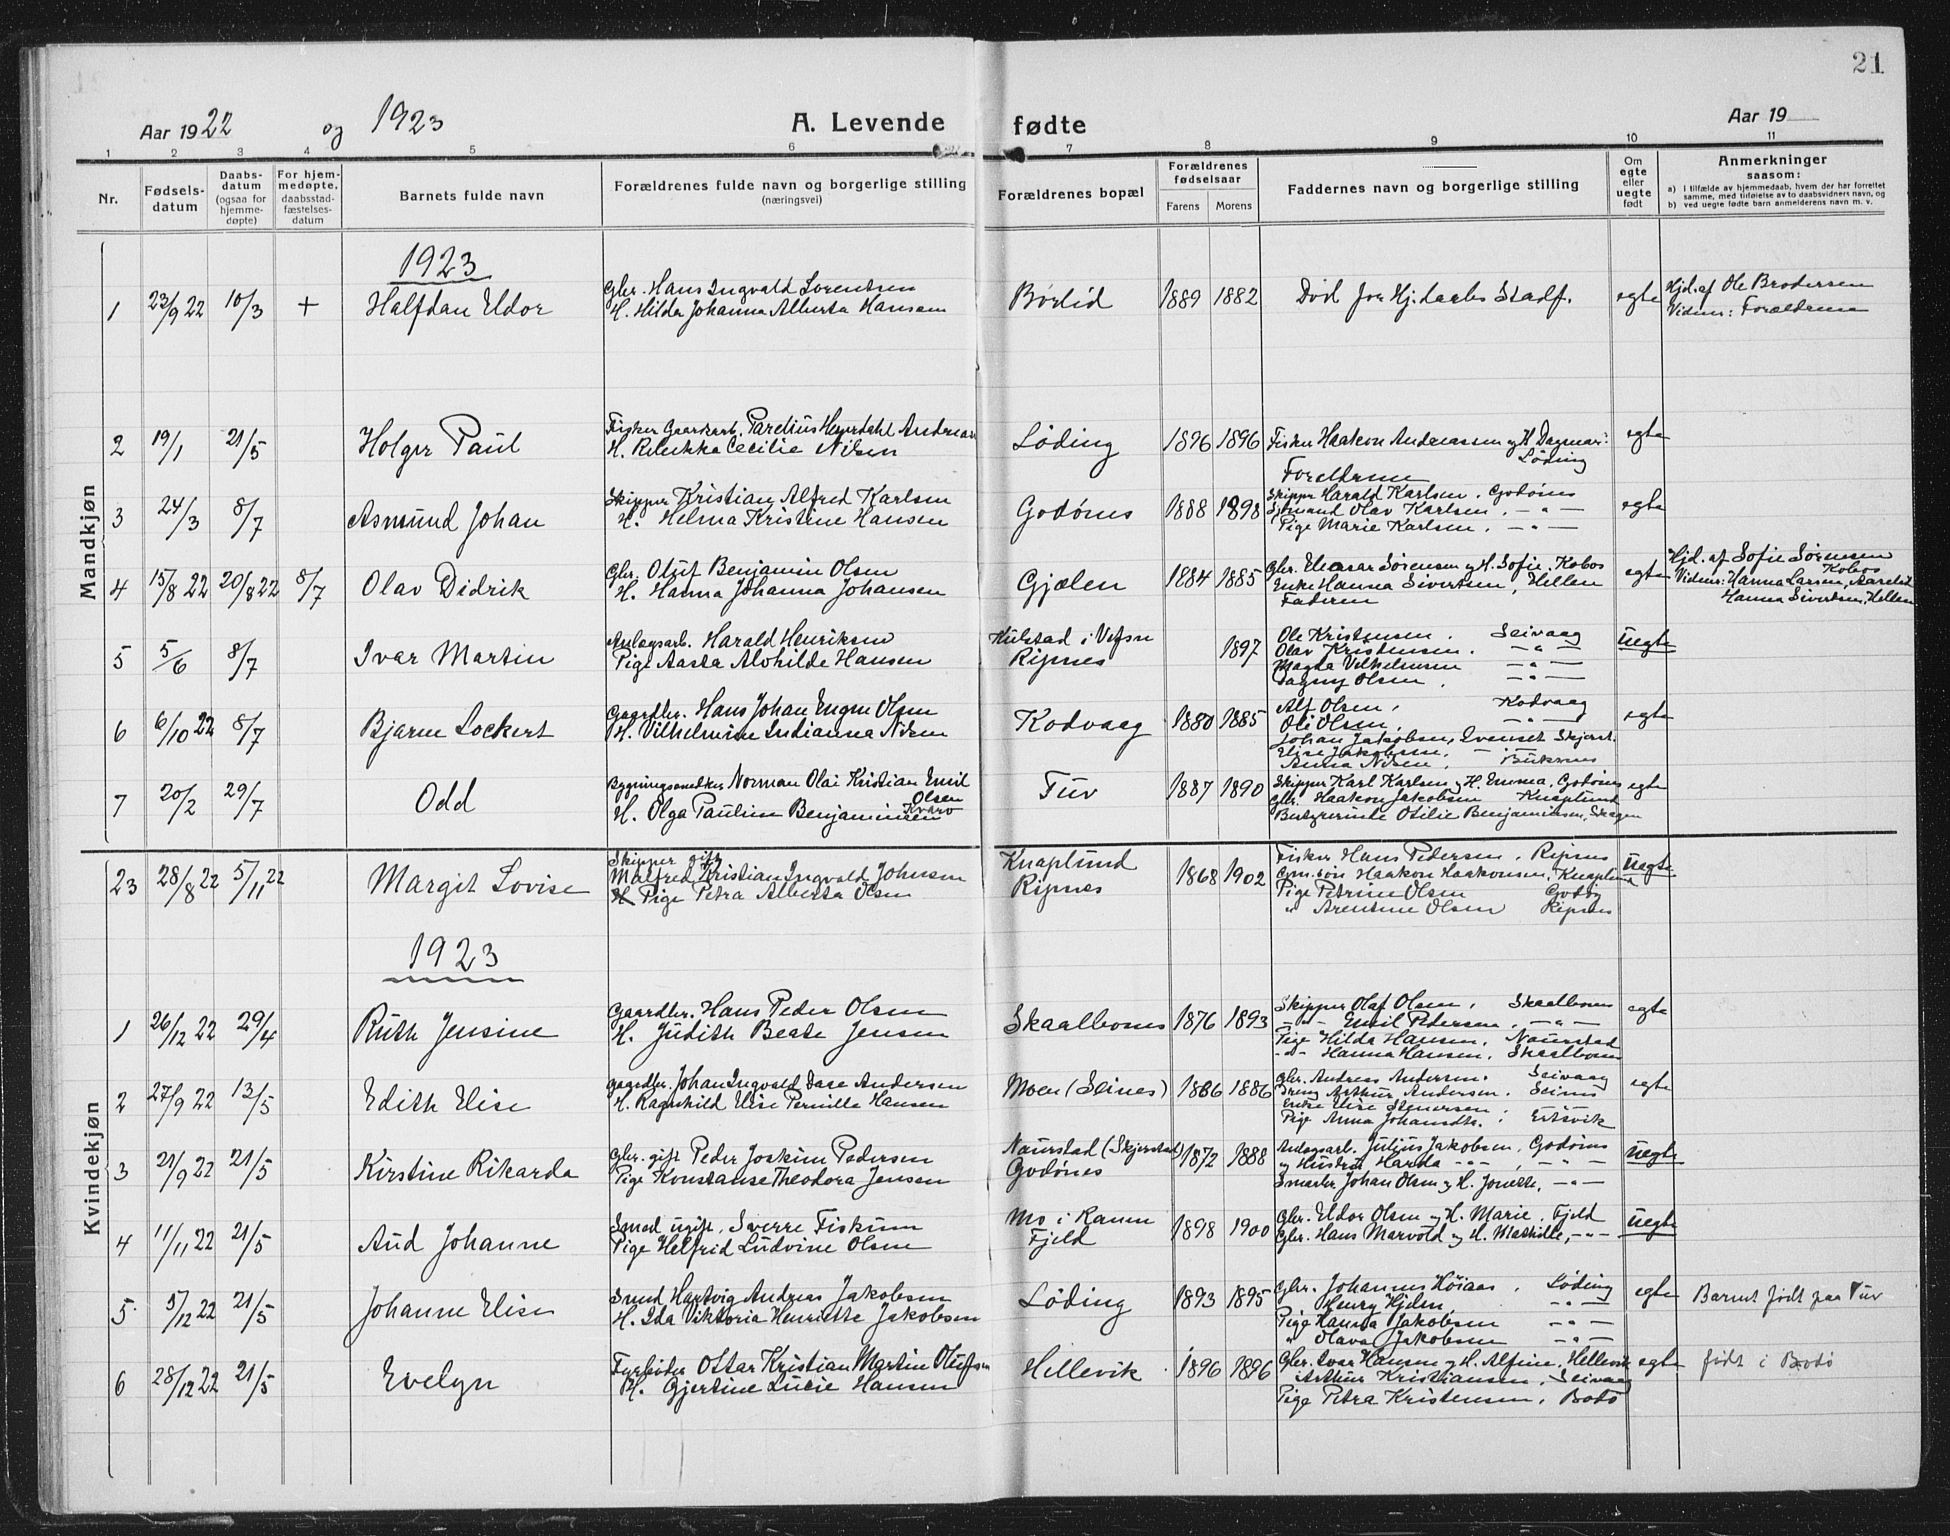 21
Aar 1922 og 1923
A. Levende fødte
Aar 19
1 2 3 4 5 6 7 8 9 10 11
Nr.
Fødsels-
datum
Daabs-
datum
(ogsaa for
hjemme-
døpte)
For hjem-
medøpte,
daabsstad-
fæstelses-
datum
Barnets fulde navn
Forældrenes fulde navn og borgerlige stilling
(næringsvei)
Forældrenes bopæl
Forældrenes
fødselsaar
Farens Morens
Faddernes navn og borgerlige stilling
Om
egte
eller
uegte
født
Anmerkninger
saasom:
a) i tilfælde av hjemmedaab, hvem der har forrettet
samme, med tilføielse av to daabsvidners navn, og
b) ved uegte fødte barn anmelderens navn m. v.
Mandkjøn
1923
1 23/9 22 10/3 + Halfdan Eldor
Gbr. Hans Ingvald Lorentsen
H. Hilda Johanna Alberta Hansen
Børlid 1889 1882
Død før Hj.daabs Stadf.
egte
Hjd. af Ole Brodersen
Vidner: Forældrene
2 19/1 21/5 Holger Paul
Fisker Gaardarb. Parelius Heyerdahl Andreas
H. Rebekka Cecilie Nilsen
Løding 1896 1896
Fisker Haakon Andreassen og H. Dagmar:
Løding
Foreldrene
egte
3 24/3 8/7 Asmund Johan
Skipper Kristian Alfred Karlsen
H. Helma Kristine Hansen
Godønes 1888 1898
Skipper Harald Karlsen. Godønes
Sjømand Olav Karlsen. -"-
Pige Marie Karlsen. -"-
egte
4 15/8 22 20/8 22 8/7 Olav Didrik
Gbr. Oluf Benjamin Olsen
H. Hanna Johanna Johansen
Gjælen 1884 1885
Gbr. Eleasar Sørensen og H. Sofie. Kobos
Enke Hanna Sivertsen, Hellen
Faderen
egte
Hjd. af Sofie Sørensen
Kobos
Vidner: Hanna Larsen,
Hanna Sivertsen, Hellen
5 5/6 8/7 Ivar Martin
Anlægsarb. Harald Henriksen
Pige Aasta Alvhilde Hansen
Kulstad i Vefsn
Ripnes
1897
Ole Kristensen. Seivaag
Olav Kristensen. -"-
Magda Vilhelmsen -"-
Dagny Olsen. -"-
uegte
6 6/10 22 8/7 Bjarne Lockert
Gaardbr. Hans Johan Engen Olsen
H. Vilhelmine Indianna Nilsen
Kodvaag 1880 1885
Alf Olsen, Kodvaag
Ole Olsen, -"-
Johan Jakobsen, Evenset Skjerst.
Elise Jakobsen, - " -
Anna Nilsen,
egte
7 20/2 29/7 Odd
Bygningssnedker Norman Olai Kristian Emil
Olsen
H. Olga Pauline Benjaminsen Kvarv
Tuv 1887 1890
Skipper Karl Karlsen og H. Emma, Godønes
Gbr. Haakon Jakobsen Knaplund
Bestyrerinde Otilie Benjaminsen, Skagen
egte
23 28/8 22 5/11 22 Margit Lovise
Skipper gift
Malfred Kristian Ingvald Johnsen
H Pige Petra Alberta Olsen
Knaplund
Ripnes
1868 1902
Fisker Hans Pedersen. Ripnes
Grm.søn Haakon Haakonsen, Knaplund
Pige Petrine Olsen Godøy
" Arentine Olsen Ripnes
uegte
Kvindekjøn
1923
1 26/12 22 29/4 Ruth Jensine
Gaardbr. Hans Peder Olsen
H. Judith Beate Jensen
Skaalbones 1876 1893
Skipper Olaf Olsen, Skaalbones
-"- Emil Pedersen, -"-
Pige Hilda Hansen, Naurstad
-"- Hanna Hansen, Skaalbones
egte
2 27/9 22 13/5 Edith Elise
Gaardbr. Johan Ingvald Dase Andersen
H. Ragnhild Elise Pernille Hansen
Moen (Seines) 1886 1886
Gbr. Andreas Andersen. Seivaag
Dreng Arthur Andersen. Seines
Enke Elise Stenersen
Pige Anna Johansdtr. Ertsvik
egte
3 21/9 22 21/5 Kirstine Rikarda
Gbr. gift Peder Joakim Pedersen
Pige Konstanse Theodora Jensen
Naurstad (Skjerstad)
Godønes
1872 1888
Anlægsarb. Julius Jakobsen, Godønes
og Hustru Harda -"-, -"-
Smaabr. Johan Olsen og H. Jonette, -"-
uegte
4 11/11 22 21/5 Aud Johanne
Smed ugift, Sverre Fiskum
Pige Helfrid Ludvine Olsen
Mo i Ranen
Fjeld
1898 1900
Gbr. Eldor Olsen og H. Marie. Fjeld
Gbr. Hans Marvold og H. Mathilde, -"-
uegte
5 5/12 22 21/5 Johanne Elise
Smed Hartvig Andreas Jakobsen
H. Ida Viktoria Henriette Jakobsen
Løding 1893 1895
Gbr. Johannes Høiaas, Løding
Henry Hjelen, -"-
Pige Hanna Jakobsen -"-
" Olava Jakobsen -"-
egte
Barnet født paa Tuv
6 28/12 22 21/5 Evelyn
Fyrbøder Ottar Kristian Martin Olufsen
H. Gjertine Lucie Hansen
Hellevik 1896 1896
Gbr. Ivar Hansen og H. Alfine. Hellevik
Arthur Kristiansen, Seivaag
Pige Petra Kristensen, Bodø
egte
født i Bodø